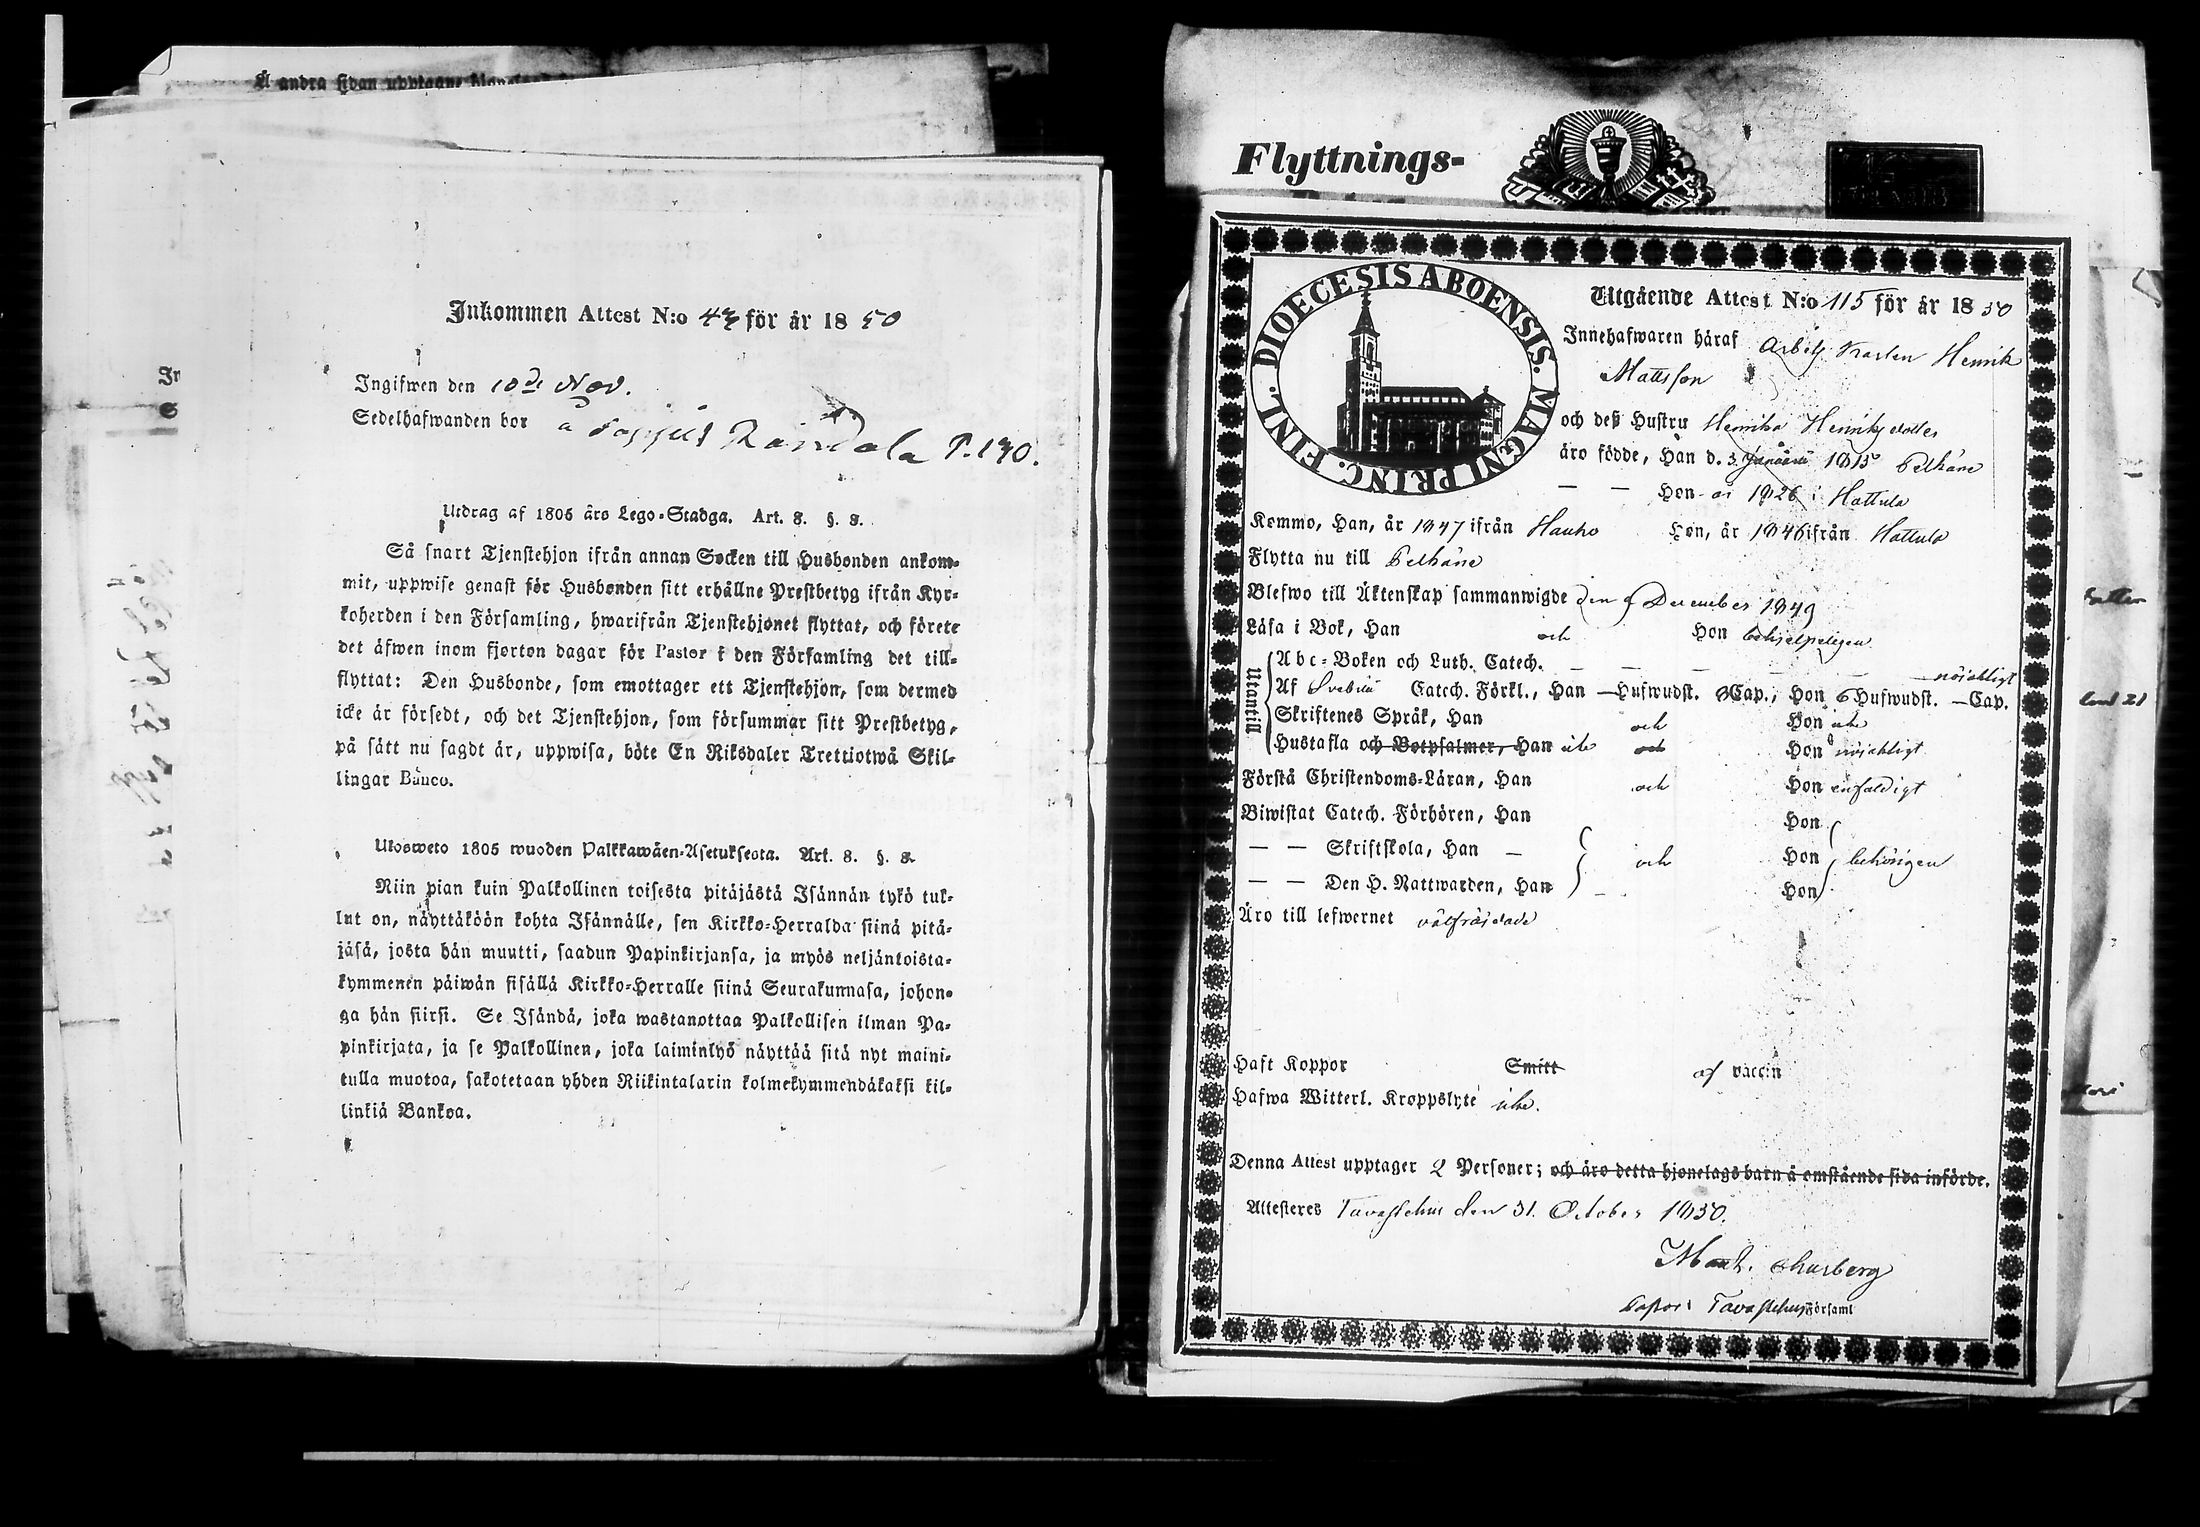 Å andra sidan upptagne
Inkommen Attest N:o 43 för år 1850
Ingifwen den 10de Nov.
Sedelhafwanden bor å P. 130.
Utdrag af 1805 års Lego-Stadga. Art. 8. §. 8.
Så snart Tjenstehjon ifrån annan Socken till Husbonden ankom-
mit, uppwise genast för Husbonden sitt erhållne Prestbetyg ifrån Kyr-
koherden i den Församling, hwarifrån Tjenstehjonet flyttat, och förete
det äfwen inom fjorton dagar för Pastor i den Församling det till-
flyttat: Den Husbonde, som emottager ett Tjenstehjon, som dermed
icke är försedt, och det Tjenstehjon, som försummar sitt Prestbetyg,
på sätt nu sagdt är, uppwisa, böte En Riksdaler Trettiotwå Skil-
lingar Banco.
Ulosweto 1805 wuoden Palkkawäen-Asetuksesta. Art. 8. §. 8.
Niin pian kuin Palkollinen toisesta pitäjästä Isännän tykö tul-
lut on, näyttäköön kohta Isännälle, sen Kirkko-Herralda siinä pitä-
jäsä, josta hän muutti, saadun Papinkirjansa, ja myös neljäntoista-
kymmenen päiwän sisällä Kirkko-Herralle siinä Seurakunnasa, johon-
ga hän siirsi. Se Isändä, joka wastanottaa Palkollisen ilman Pa-
pinkirjata, ja se Palkollinen, joka laiminlyö näyttää sitä nyt maini-
tulla muotoa, sakotetaan yhden Riikintalarin kolmekymmendäkaksi kil-
linkiä Bankoa.
Flyttnings-
DIOECESIS ABOENSIS. MAGNI PRINC. FINL.
Utgående Attest N:o 115 för år 1850
Innehafwaren häraf Arbets Karlen Henrik
Mattsson
och deß Hustru Henrika Henriksdotter
äro födde, Han d. 3 Januarii 1815 Pelkäne
— — Hon år 1826 i Hattula
Kommo, Han, år 1847 ifrån Hauho Hon, år 1846 ifrån Hattula
Flytta nu till Pelkäne
Blefwo till Äktenskap sammanwigde den 9 December 1849
Läsa i Bok, Han och Hon behjelpeligen
Utantill
Abc-Boken och Luth. Catech. — — — — nöjaktligt
Af Svebilii Catech. Förkl., Han — Hufwudst. 8 Cap., Hon 6 Hufwudst. — Cap.
Skriftenes Språk, Han och Hon icke
Hustafla och Botpsalmer, Han icke och Hon nöjaktligt
Förstå Christendoms-Läran, Han och Hon enfaldigt
Biwistat Catech. Förhören, Han Hon
— — Skriftskola, Han — och Hon behörigen
— — Den H. Nattwarden, Han — Hon
Äro till lefwernet välfräjdade
Haft Koppor Smitt af vaccin
Hafwa Witterl. Kroppslyte icke.
Denna Attest upptager 2 Personer; och äro detta hjonelags barn å omstående sida införde.
Attesteres Tavastehus den 31. October 1850.
Churberg
Pastor i Tavastehus Församl